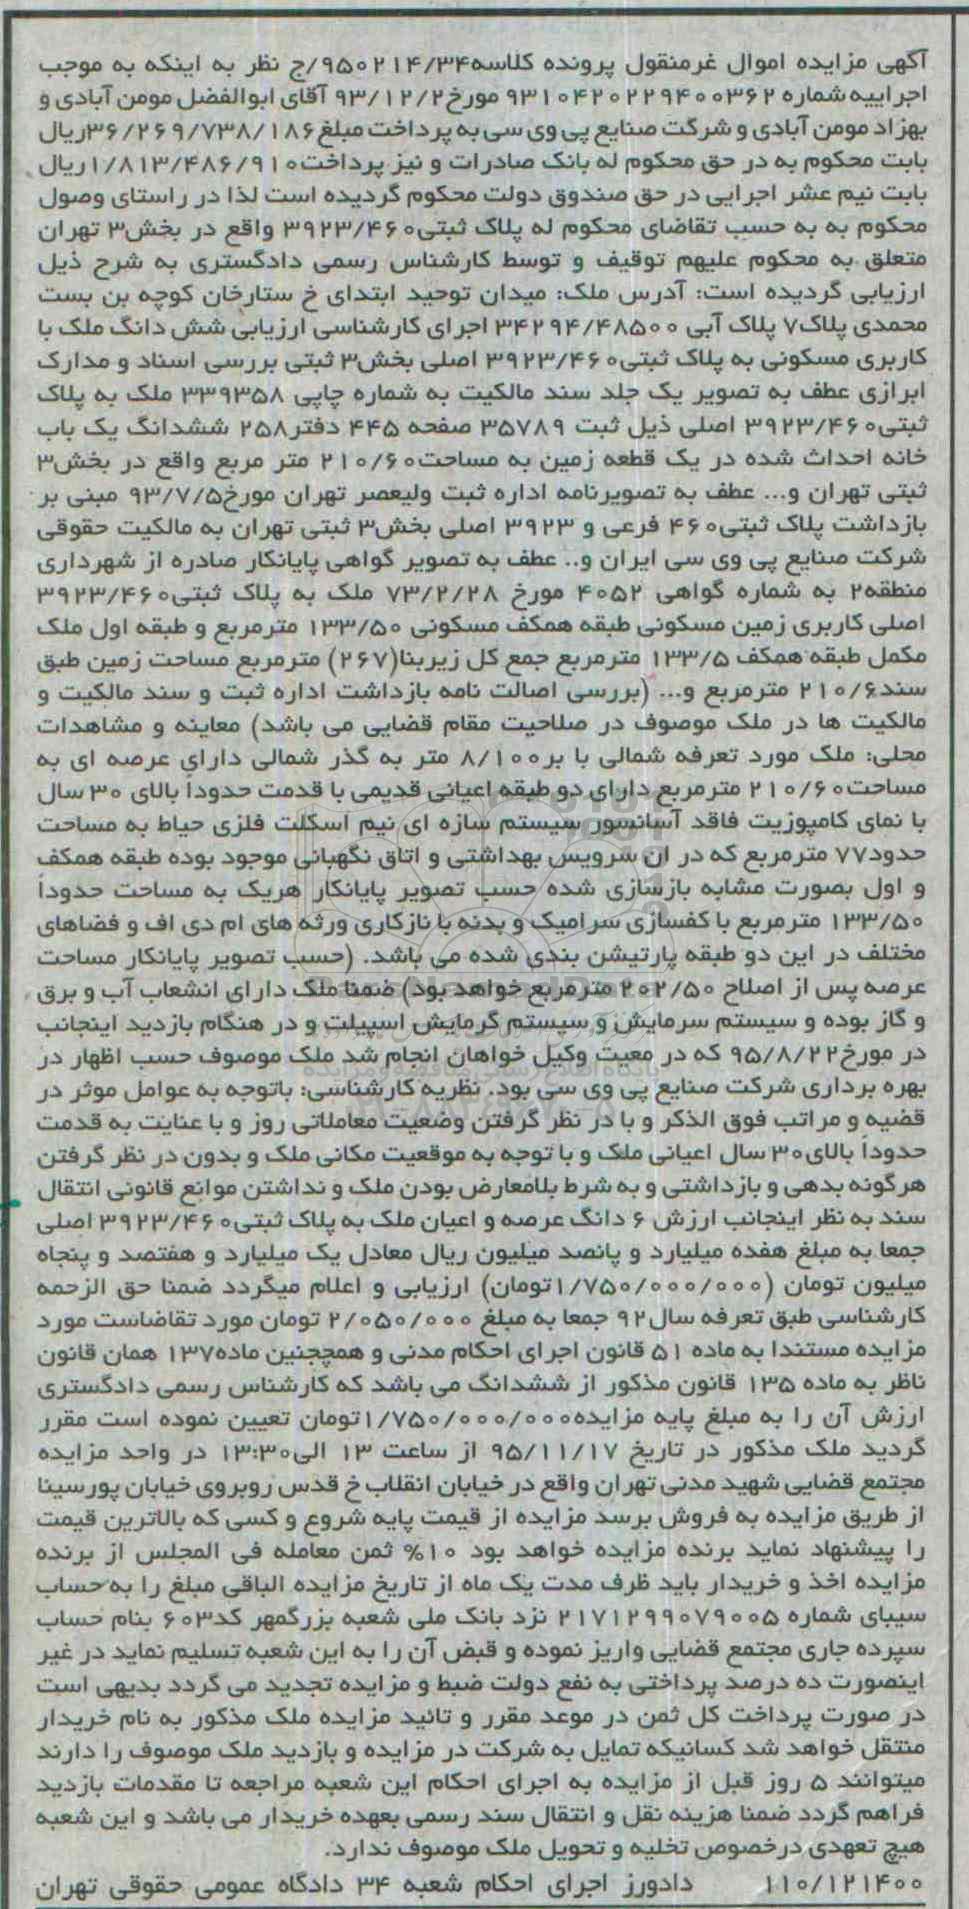 آگهی مزایده اموال غرمنقول پرونده کلاسه۹۵۰۲۱۴/۳۴/ج نظر به اینکه به موجب
اجراییه شماره ۹۳۱۰۴۲۰۲۲۹۴۰۰۳۶۲ مورخ۹۳/۱۲/۲ آقای ابوالفضل مومن آبادی و
بهزاد مومن آبادی و شرکت صنایع پی وی سی به پرداخت مبلغ۳۶/۲۶۹/۷۳۸/۱۸۶ریال
بابت محکوم به در حق محکوم له بانک صادرات و نیز پرداخت۱/۸۱۳/۴۸۶/۹۱۰ریال
بابت نیم عشر اجرایی در حق صندوق دولت محکوم گردیده است لذا در راستای وصول
محکوم به به حسب تقاضای محکوم له پلاک ثبتی۳۹۲۳/۴۶۰ واقع در بخش۳ تهران
متعلق به محکوم علیهم توقیف و توسط کارشناس رسمی دادگستری به شرح ذیل
ارزیابی گردیده است: آدرس ملک: میدان توحید ابتدای خ ستارخان کوچه بن بست
محمدی پلاک۷ پلاک آبی ۳۴۲۹۴/۴۸۵۰۰ اجرای کارشناسی ارزیابی شش دانگ ملک با
کاربری مسکونی به پلاک ثبتی۳۹۲۳/۴۶۰ اصلی بخش۳ ثبتی بررسی اسناد و مدارک
ابرازی عطف به تصویر یک جلد سند مالکیت به شماره چاپی ۳۳۹۳۵۸ ملک به پلاک
ثبتی۳۹۲۳/۴۶۰ اصلی ذیل ثبت ۳۵۷۸۹ صفحه ۴۴۵ دفتر۲۵۸ ششدانگ یک باب
خانه احداث شده در یک قطعه زمین به مساحت۲۱۰/۶۰ متر مربع واقع در بخش۳
ثبتی تهران و... عطف به تصویرنامه اداره ثبت ولیعصر تهران مورخ۹۳/۷/۵ مبنی بر
بازداشت پلاک ثبتی۴۶۰ فرعی و ۳۹۲۳ اصلی بخش۳ ثبتی تهران به مالکیت حقوقی
شرکت صنایع پی وی سی ایران و.. عطف به تصویر گواهی پایانکار صادره از شهرداری
منطقه۲ به شماره گواهی ۴۰۵۲ مورخ ۷۳/۲/۲۸ ملک به پلاک ثبتی۳۹۲۳/۴۶۰
اصلی کاربری زمین مسکونی طبقه همکف مسکونی ۱۳۳/۵۰ مترمربع و طبقه اول ملک
مکمل طبقه همکف ۱۳۳/۵ مترمربع جمع کل زیربنا(۲۶۷) مترمربع مساحت زمین طبق
سند۲۱۰/۶ مترمربع و... (بررسی اصالت نامه بازداشت اداره ثبت و سند مالکیت و
مالکیت ها در ملک موصوف در صلاحیت مقام قضایی می باشد) معاینه و مشاهدات
محلی: ملک مورد تعرفه شمالی با بر۸/۱۰۰ متر به گذر شمالی دارای عرصه ای به
مساحت۲۱۰/۶۰ مترمربع دارای دو طبقه اعیانی قدیمی با قدمت حدوداً بالای ۳۰ سال
با نمای کامپوزیت فاقد آسانسور سیستم سازه ای نیم اسکلت فلزی حیاط به مساحت
حدود۷۷ مترمربع که در ان سرویس بهداشتی و اتاق نگهبانی موجود بوده طبقه همکف
و اول بصورت مشابه بازسازی شده حسب تصویر پایانکار هریک به مساحت حدوداً
۱۳۳/۵۰ مترمربع با کفسازی سرامیک و بدنه با نازکاری ورثه های ام دی اف و فضاهای
مختلف در این دو طبقه پارتیشن بندی شده می باشد. (حسب تصویر پایانکار مساحت
عرصه پس از اصلاح ۲۰۲/۵۰ مترمربع خواهد بود) ضمنا ملک دارای انشعاب آب و برق
و گاز بوده و سیستم سرمایش و سیستم گرمایش اسپیلت و در هنگام بازدید اینجانب
در مورخ۹۵/۸/۲۲ که در معیت وکیل خواهان انجام شد ملک موصوف حسب اظهار در
بهره برداری شرکت صنایع پی وی سی بود. نظریه کارشناسی: باتوجه به عوامل موثر در
قضیه و مراتب فوق الذکر و با در نظر گرفتن وضعیت معاملاتی روز و با عنایت به قدمت
حدوداً بالای۳۰ سال اعیانی ملک و با توجه به موقعیت مکانی ملک و بدون در نظر گرفتن
هرگونه بدهی و بازداشتی و به شرط بلامعارض بودن ملک و نداشتن موانع قانونی انتقال
سند به نظر اینجانب ارزش ۶ دانگ عرصه و اعیان ملک به پلاک ثبتی۳۹۲۳/۴۶۰ اصلی
جمعا به مبلغ هفده میلیارد و پانصد میلیون ریال معادل یک میلیارد و هفتصد و پنجاه
میلیون تومان (۱/۷۵۰/۰۰۰/۰۰۰تومان) ارزیابی و اعلام میگردد ضمنا حق الزحمه
کارشناسی طبق تعرفه سال۹۲ جمعا به مبلغ ۲/۰۵۰/۰۰۰ تومان مورد تقاضاست مورد
مزایده مستندا به ماده ۵۱ قانون اجرای احکام مدنی و همچجنین ماده۱۳۷ همان قانون
ناظر به ماده ۱۳۵ قانون مذکور از ششدانگ می باشد که کارشناس رسمی دادگستری
ارزش آن را به مبلغ پایه مزایده۱/۷۵۰/۰۰۰/۰۰۰تومان تعیین نموده است مقرر
گردید ملک مذکور در تاریخ ۹۵/۱۱/۱۷ از ساعت ۱۳ الی۱۳:۳۰ در واحد مزایده
مجتمع قضایی شهید مدنی تهران واقع در خیابان انقلاب خ قدس روبروی خیابان پورسینا
از طریق مزایده به فروش برسد مزایده از قیمت پایه شروع و کسی که بالاترین قیمت
را پیشنهاد نماید برنده مزایده خواهد بود ۱۰% ثمن معامله فی المجلس از برنده
مزایده اخذ و خریدار باید ظرف مدت یک ماه از تاریخ مزایده الباقی مبلغ را به حساب
سیبای شماره ۲۱۷۱۲۹۹۰۷۹۰۰۵ نزد بانک ملی شعبه بزرگمهر کد۶۰۳ بنام حساب
سپرده جاری مجتمع قضایی واریز نموده و قبض آن را به این شعبه تسلیم نماید در غیر
اینصورت ده درصد پرداختی به نفع دولت ضبط و مزایده تجدید می گردد بدیهی است
در صورت پرداخت کل ثمن در موعد مقرر و تائید مزایده ملک مذکور به نام خریدار
منتقل خواهد شد کسانیکه تمایل به شرکت در مزایده و بازدید ملک موصوف را دارند
میتوانند ۵ روز قبل از مزایده به اجرای احکام این شعبه مراجعه تا مقدمات بازدید
فراهم گردد ضمنا هزینه نقل و انتقال سند رسمی بعهده خریدار می باشد و این شعبه
هیچ تعهدی درخصوص تخلیه و تحویل ملک موصوف ندارد.
۱۱۰/۱۲۱۴۰۰ دادورز اجرای احکام شعبه ۳۴ دادگاه عمومی حقوقی تهران